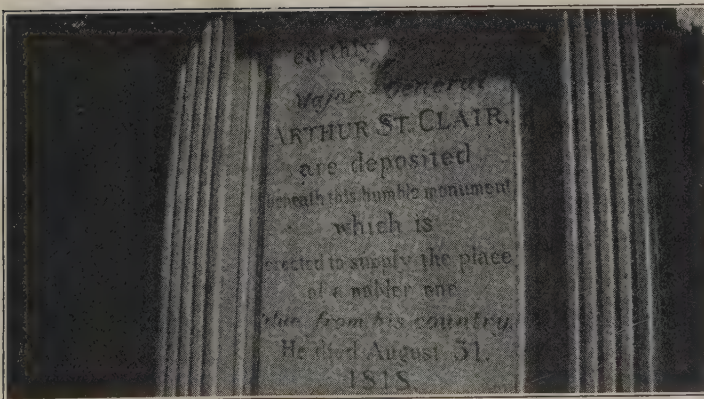 earthly
Major General
ARTHUR ST. CLAIR.
are deposited
beneath this humble monument
which is
erected to supply the place
of a nobler one
due from his country.
He died August 31.
1818